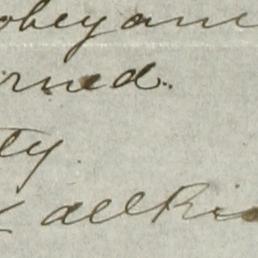 obey am
rned.
ty
all Ri